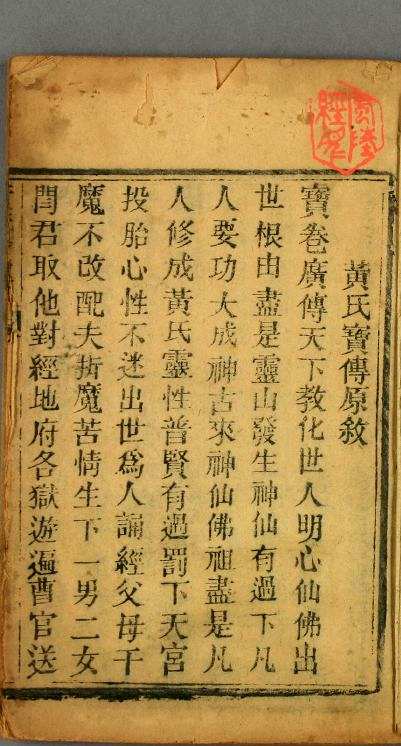 黃氏寶傳原敘
寶卷廣傳天下教化世人明心仙佛出
世根由盡是靈山發生神仙有過下凡
人要功大成神古來神仙佛祖盡是凡
人修成黃氏靈性普賢有過罰下天宮
投胎心性不迷出世為人誦經父母千
魔不改配夫折魔苦情生下一男二女
閆君取他對經地府各獄遊遍曹官送